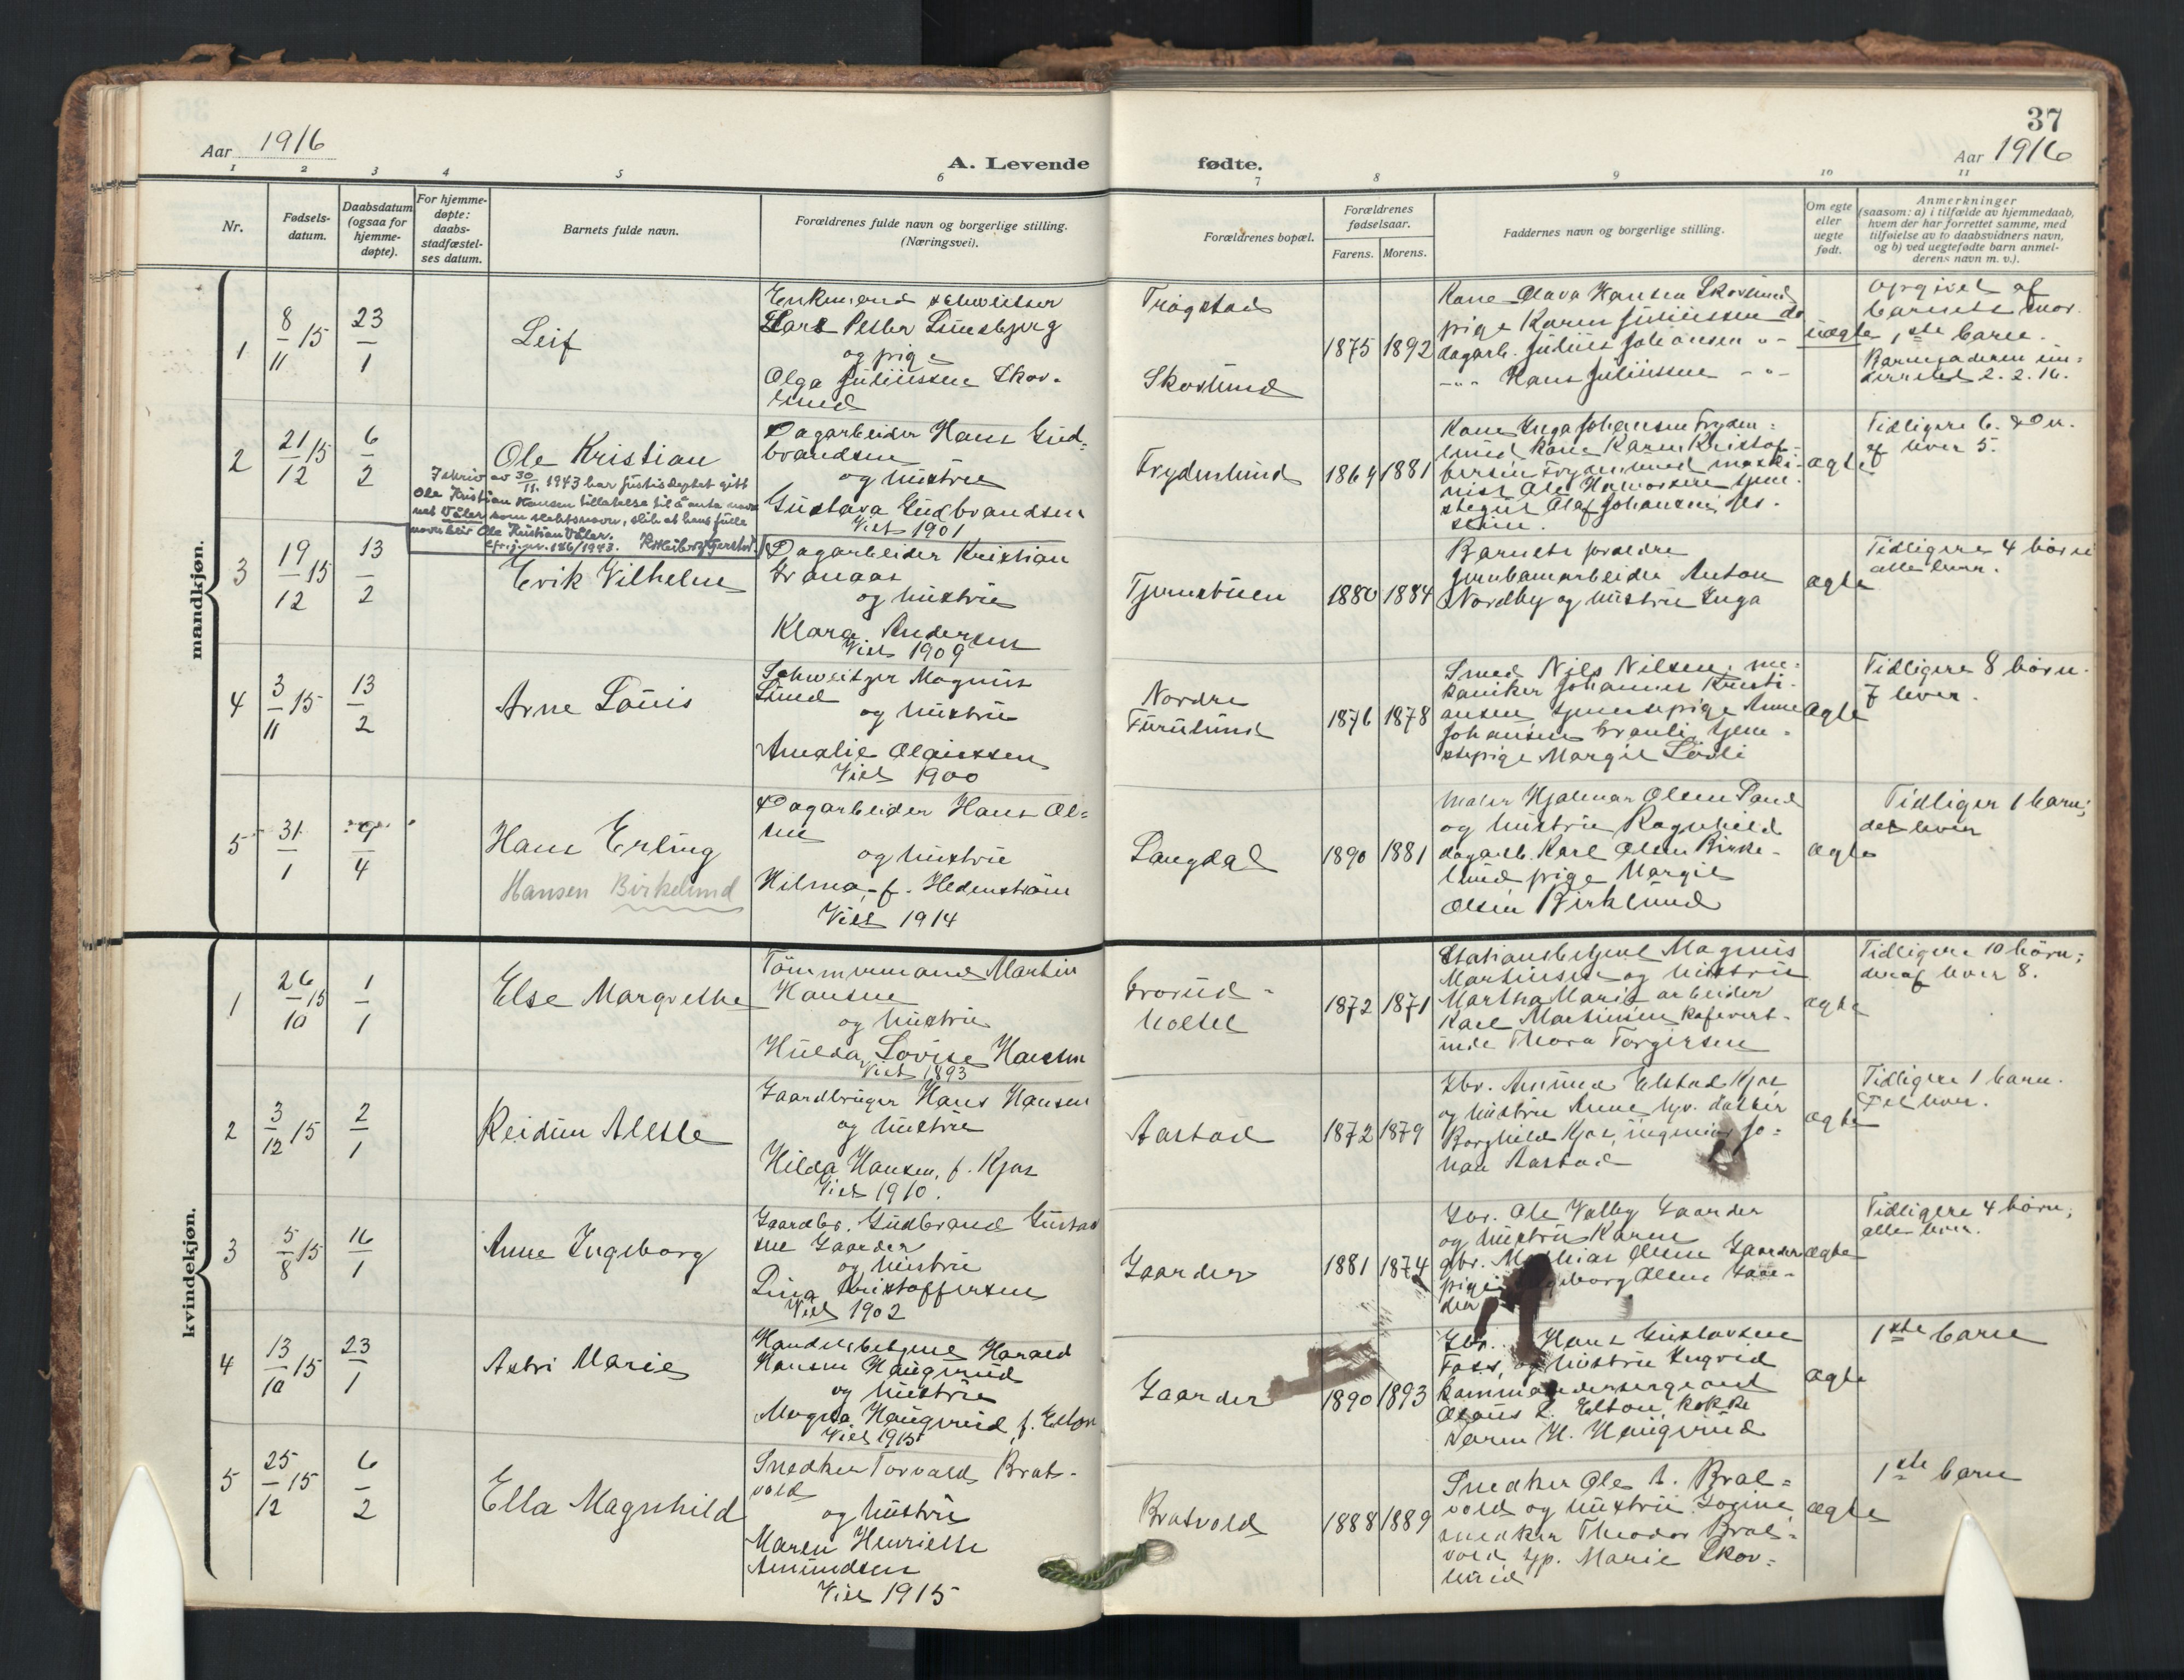 37
Aar 1916
A. Levende
fødte.
Aar 1916
1 2 3 4 5 6 7 8 9 10 11
Nr.
Fødsels-
datum.
Daabsdatum
(ogsaa for
hjemme-
døpte).
For hjemme-
døpte:
daabs-
stadfæstel-
ses datum.
Barnets fulde navn.
Forældrenes fulde navn og borgerlige stilling.
(Næringsvei).
Forældrenes bopæl.
Forældrenes
fødselsaar.
Farens. Morens.
Faddernes navn og borgerlige stilling.
Om egte
eller
uegte
født.
Anmerkninger
(saasom: a) i tilfælde av hjemmedaab,
hvem der har forrettet samme, med
tilføielse av to daabsvidners navn,
og b) ved uegtefødte barn anmel-
derens navn m. v.).
mandkjøn.
1
8/11 15
23/1
Leif
Enkemand schweitser
Lars Petter Linnebjerg
og pige
Olga Juliussen Skov-
lund
Trøgstad
Skovlund
1875 1892
Kone Olava Hansen Skovlund
pige Karen Juliussen do
dagarb. Julius Johansen -"-
-"- Hans Juliussen -"-
uægte
Opgivet af
barnets mor.
1ste barn.
2. 2. 16.
2
21/12 15
6/2
Ole Kristian
I skriv av 30/11. 1943 har Justisdeptet gitt
Ole Kristian Hansen tillatelse til å anta nav-
net Våler som slektsnavn, slik at hans fulle
navn blir Ole Kristian Våler.
Cfr. j.nr. 186/1943.
Dagarbeider Hans Gud-
brandsen
og hustru
Gustava Gudbrandsen
Viet 1901
Frydenlund
1864 1881
Kone Inga Johansen Fryden-
lund, kone Karen Kristof-
fersen Frydenlund, maski-
nist Ole Halvorsen, tjene-
stegut Olaf Johansen,
ægte
Tidligere 6.
af lever 5.
3
19/12 15
13/2
Erik Vilhelm
Dagarbeider Kristian
Granaas
og hustru
Klara Andersen
Viet 1909
Tjernstuen
1880 1884
Barnets forældre
jernbanearbeider Anton
Nordby og hustru Inga
ægte
Tidligere 4 børn
alle lever.
4
3/11 15
13/2
Arne Louis
Schweitzer Magnus
Lund
og hustru
Amalie Olaussen
Viet 1900
Nordre
Furulund
1876 1878
Smed Nils Nilsen, me-
kaniker Johannes Kristi-
ansen, tjenestepige Anne
Johansen Granli, tjene-
stepige Margit Lødli
ægte
Tidligere 8 børn.
7 lever.
5
31/1
9/4
Hans Erling
Hansen Birkelund
Dagarbeider Hans Ol-
sen
og hustru
Hilma, f. Hedenstrøm
Viet 1914
Langdal
1890 1881
Maler Hjalmar Olsen Sand
og hustru Ragnhild
dagarb. Karl Olsen Birke-
lund, pige Margit
Olsen Birklund
ægte
Tidliger 1 barn;
det lever
kvindekjøn.
1
26/10 15
1/1
Else Margrethe
Tømmermand Martin
Hansen
og hustru
Hulda Lovise Hansen
Viet 1893
Grorud-
holtet
1872 1871
Stationsbetjent Magnus
Martinsen og hustru
Martha Marie, arbeider
Karl Martinsen, kafevert-
inde Thora Torgersen
ægte
Tidligere 10 børn;
deraf lever 8.
2
3/12 15
2/1
Reidun Alette
Gaardbruger Hans Hansen
og hustru
Hilda Hansen, f. Kjos
Viet 1910.
Aastad
1872 1879
Gbr. Amund Elstad Kjos
og hustru Anne, gbr. datter
Borghild Kjos, ingeniør Jo-
han Aastad
ægte
Tidligere 1 barn.
Det lever.
3
5/8 15
16/1
Anne Ingeborg
Gaardbr. Gudbrand Gustav
sen Gaarder
og hustru
Dina Kristoffersen
Viet 1902
Gaarder
1881 1874
Gbr. Ole Valby Gaarder
og hustru Karen
gbr. Mathias Olsen Gaarder
pige Ingeborg Olsen Gaar-
der
ægte
Tidligere 4 børn;
alle lever.
4
13/10 15
23/1
Astri Marie
Handelsbetjent Harald
Hansen Haugerud
og hustru
Magna Haugerud, f. Elton
Viet 1915
Gaarder
1890 1893
Gbr. Hans Gustavsen
Foss, og hustru Ingvid
kommandersergeant
Olaus L. Elton, kokke
Karen H. Haugerud
ægte
1ste barn
5
25/12 15
6/2
Ella Magnhild
Snedker Torvald Brat-
vold
og hustru
Maren Henriette
Amundsen
Viet 1915
Bratvold
1888 1889
Snedker Ole A. Brat-
vold og hustru Gogine,
snedker Theodor Brat-
vold, gp. Marie Skov-
lund
ægte
1ste barn